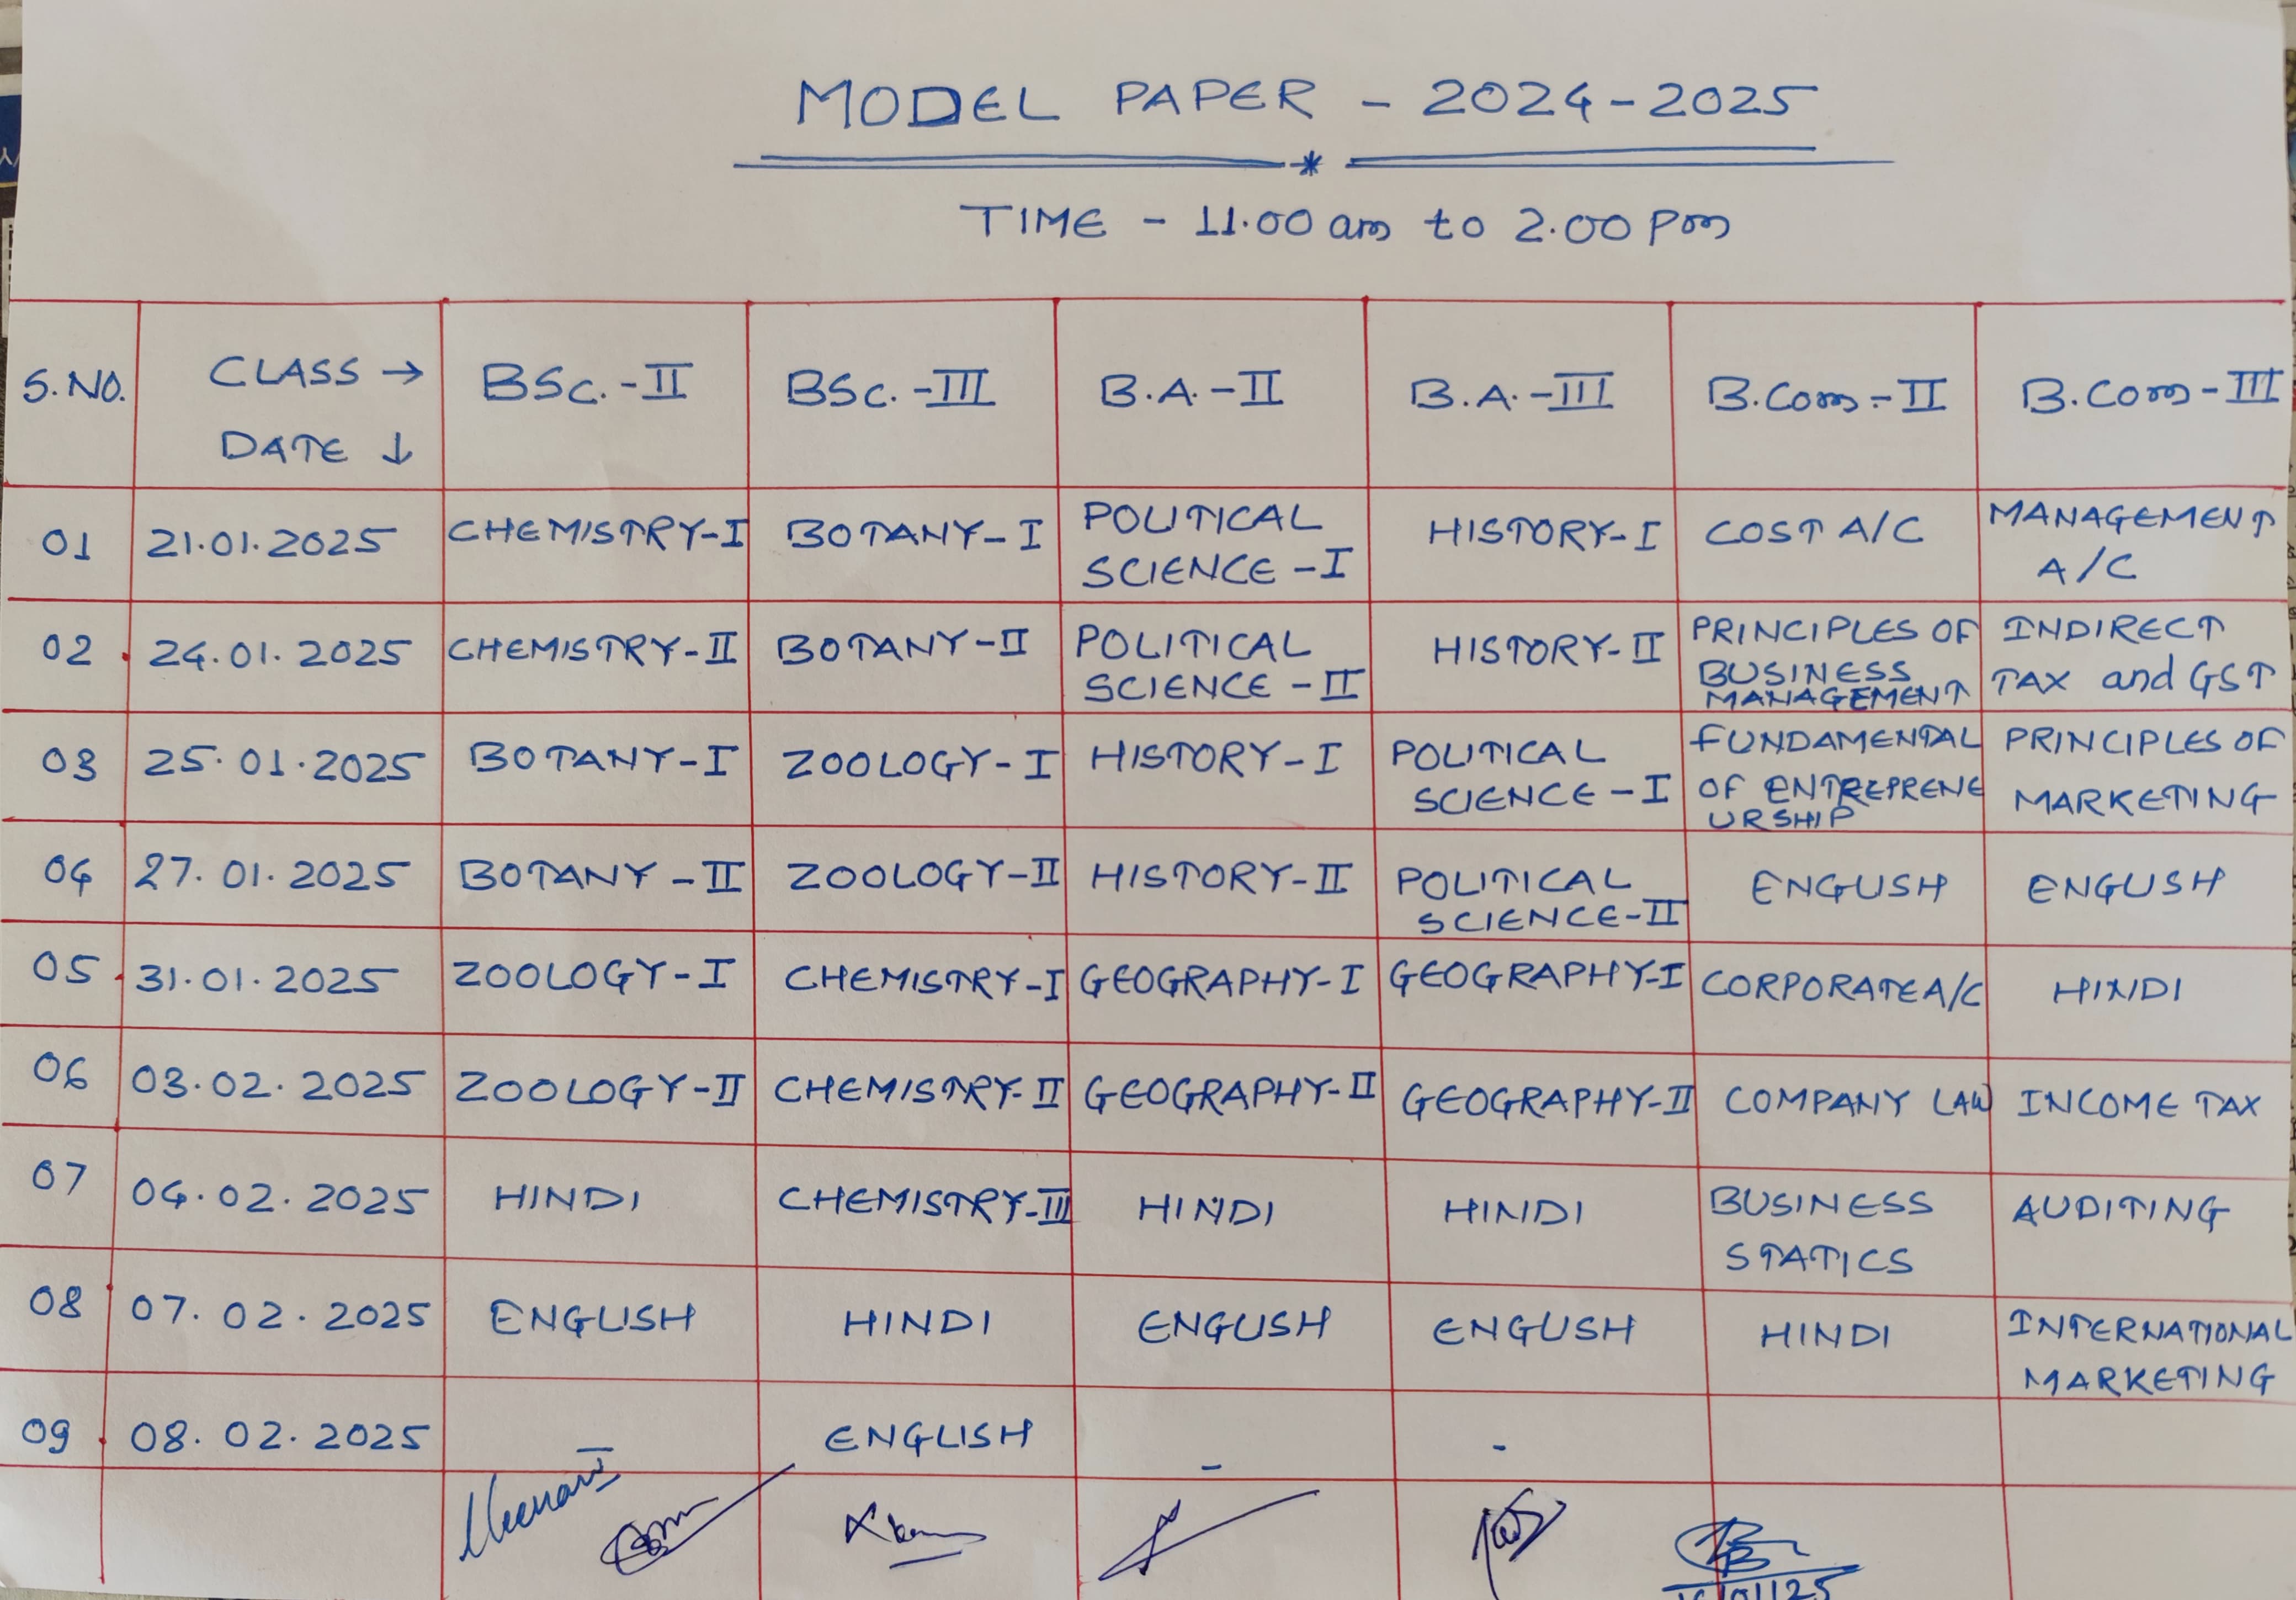 MODEL PAPER - 2024-2025
TIME - 11.00 am to 2.00 pm
S.NO. CLASS → BSc.-II BSc.-III B.A.-II B.A.-III B.Com.-II B.Com-III
DATE ↓
01 21.01.2025 CHEMISTRY-I BOTANY-I POLITICAL SCIENCE-I HISTORY-I COST A/C MANAGEMENT A/C
02 24.01.2025 CHEMISTRY-II BOTANY-II POLITICAL SCIENCE-II HISTORY-II PRINCIPLES OF BUSINESS MANAGEMENT INDIRECT TAX and GST
03 25.01.2025 BOTANY-I ZOOLOGY-I HISTORY-I POLITICAL SCIENCE-I FUNDAMENTAL OF ENTREPRENEURSHIP PRINCIPLES OF MARKETING
04 27.01.2025 BOTANY-II ZOOLOGY-II HISTORY-II POLITICAL SCIENCE-II ENGLISH ENGLISH
05 31.01.2025 ZOOLOGY-I CHEMISTRY-I GEOGRAPHY-I GEOGRAPHY-I CORPORATE A/C HINDI
06 03.02.2025 ZOOLOGY-II CHEMISTRY-II GEOGRAPHY-II GEOGRAPHY-II COMPANY LAW INCOME TAX
07 04.02.2025 HINDI CHEMISTRY-III HINDI HINDI BUSINESS STATICS AUDITING
08 07.02.2025 ENGLISH HINDI ENGLISH ENGLISH HINDI INTERNATIONAL MARKETING
09 08.02.2025 - ENGLISH - -